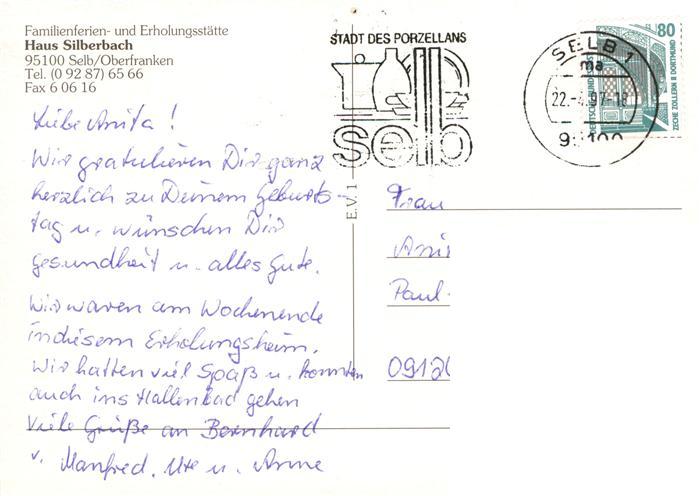 Familienferien- und Erholungsstätte
Haus Silberbach
95100 Selb/Oberfranken
Tel. (0 92 87) 65 66
Fax 6 06 16
STADT DES PORZELLANS
selb
SELB 1
ma
22.-4.97-18
95100
80
DEUTSCHE BUNDESPOST
ZECHE ZOLLERN II DORTMUND
E.V. 1
Liebe Anita!
Wir gratulieren Dir ganz
herzlich zu Deinem Geburts-
tag u. wünschen Dir
Gesundheit u. alles Gute.
Wir waren am Wochenende
in diesem Erholungsheim.
Wir hatten viel Spaß u. konnten
auch ins Hallenbad gehen
Viele Grüße an Bernhard
v. Manfred, Ute u. Anne
Frau
Ani
Paul-
0912